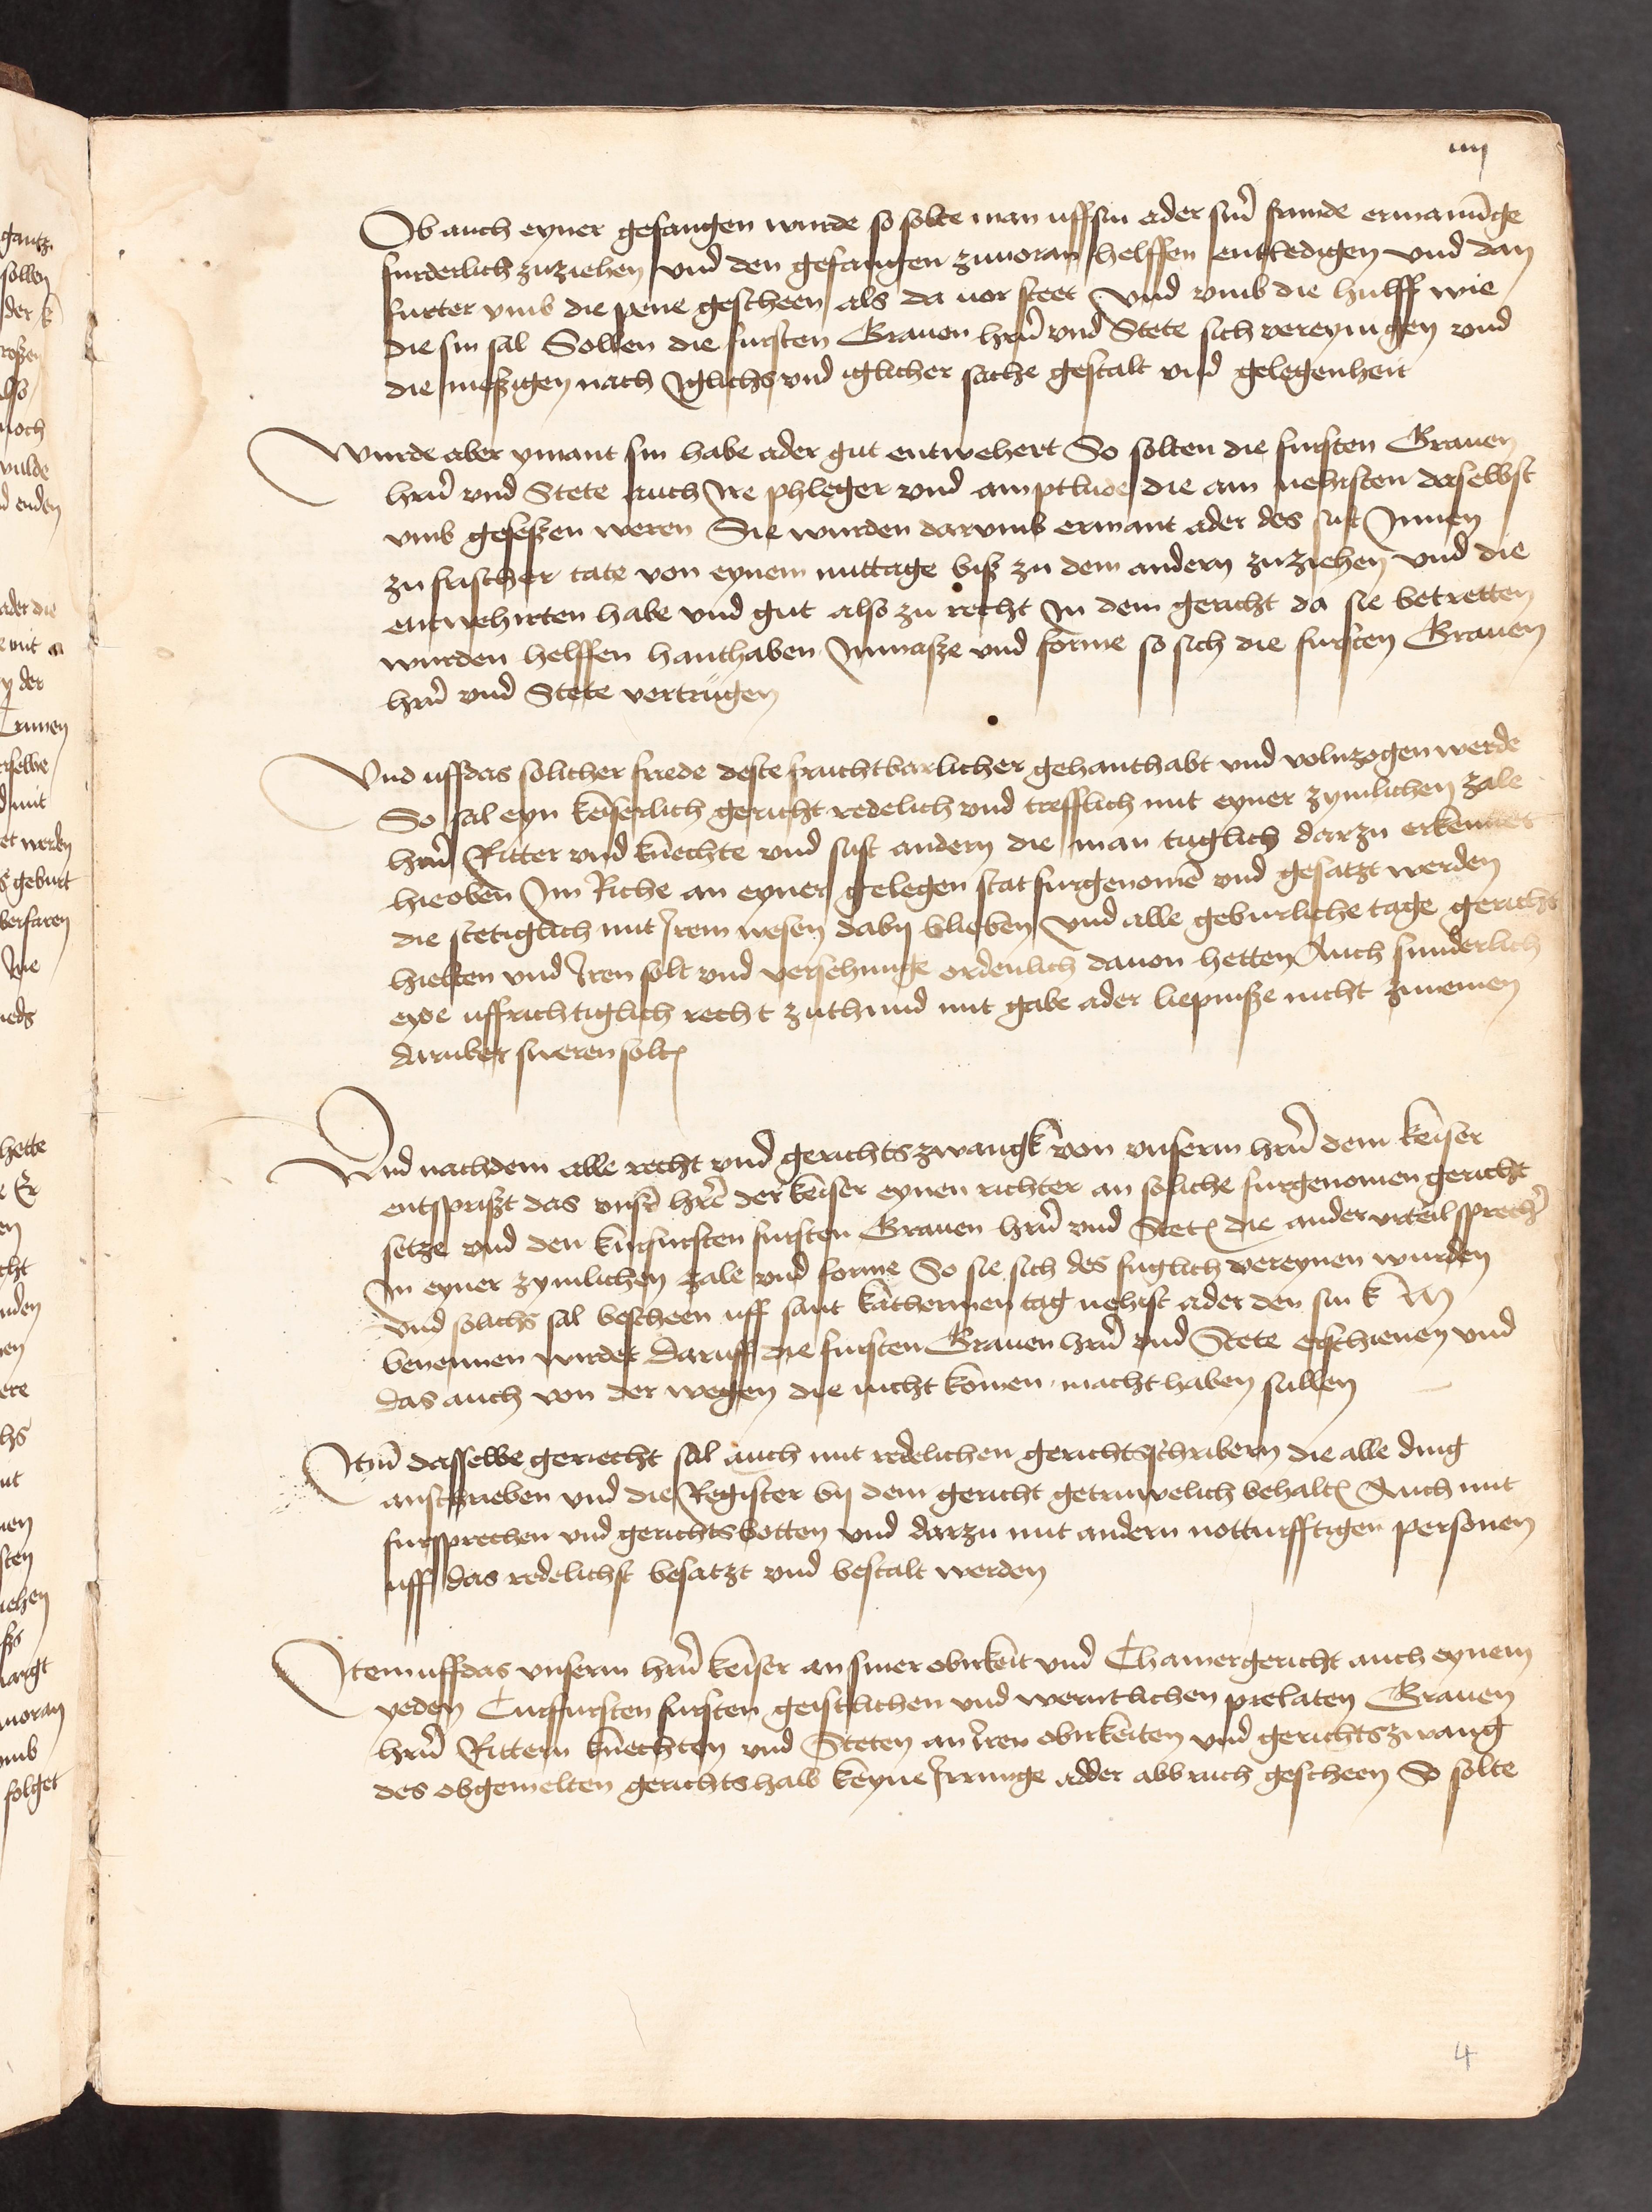 iiij
Ob auch eyner gefangen wurde so solte man uff sin ader sinr̄ frunde ermanūge
furderlich zuziehen vnd den gefangen zuuoran helffen entledigen vnd dan
furter vmb die pene gescheen als da uor steet vnd vmb die hulff wie
die sin sal Sollen die fursten Grauen hrn̄ vnd Stete sich vereynigen vnd
die meßigen nach Iglichs vnd iglicher sache gestalt vnd gelegenheit
Wurde aber ymant sin habe ader gut entwehert So solten die fursten Grauen
hrn̄ vnd Stete auch Ire phleger vnd amptlude die am nehisten daselbst
vmb geseßen weren Sie wurden darvmb ermant ader des sust Innen
zu frischer tate von eynem mittage biß zu dem andern zuziehen vnd die
entwehirten habe vnd gut also zu recht In dem gericht da sie betretten
wurden helffen hanthaben Inmaße vnd forme so sich die fursten Grauen
hrn̄ vnd Stete vertrugen
Vnd uffdas solicher frede deste fruchtbarlicher gehanthabt vnd volnzogen werde
So sal eyn keiserlich gericht redelich vnd trefflich mit eyner zymlichen zale
hrn̄ Ritter vnd knechte vnd sust andern die man tuglich darzu erkennet
hieoben Im Riche an eyner gelegen stat furgenomē vnd gesatzt werden
die stetiglich mit Irem wesen daby blieben vnd alle geburliche tage gerichts
hielten vnd Iren solt vnd versehunge ordenlich dauon hetten Auch sunderlich
eyde uffrichtiglich recht zuthund mit gabe ader liepniße nicht zunemen
daruber sweren solt
Vnd nachdem alle recht vnd gerichtszwangk von vnserm hrn̄ dem keiser
entsprißt das vnsr̄ hre der keiser eynen richter an soliche furgenomen gericht
setze vnd den kurfursten fursten Grauen hrn̄ vnd Stet die ander vrteilsprech̄
In eyner zymlichen zale vnd forme So sie sich des fuglich vereynen wurden
vnd solichs sal bescheen uff sant katherinen tag nehist ader den sin k M
benennen wirdet Daruff die fursten Grauen hrn̄ vnd Stete erschienen vnd
das auch von der wegen die nicht komen macht haben sullen
Itm̄ dasselbe geriecht sal auch mit redelichen gerichtsschribern die alle ding
anschrieben vnd die Register by dem gericht getruwelich behalt Auch mit
fursprechen vnd gerichtsbotten vnd darzu mit andern notturfftigen personen
uff das redelichst besatzt vnd bestalt werden
Item uffdas vnserm hrn̄ keiser an siner obirkeit vnd Chamergericht auch eynem
yeden Curfursten fursten geistlichen vnd werntlichen prelaten Grauen
hrn̄ Rittern knechten vnd Steten an Iren obirkeiten vnd gerichtszwang
des obgemelten gerichts halb keyne Irrunge adder abbruch gescheen So solte
4